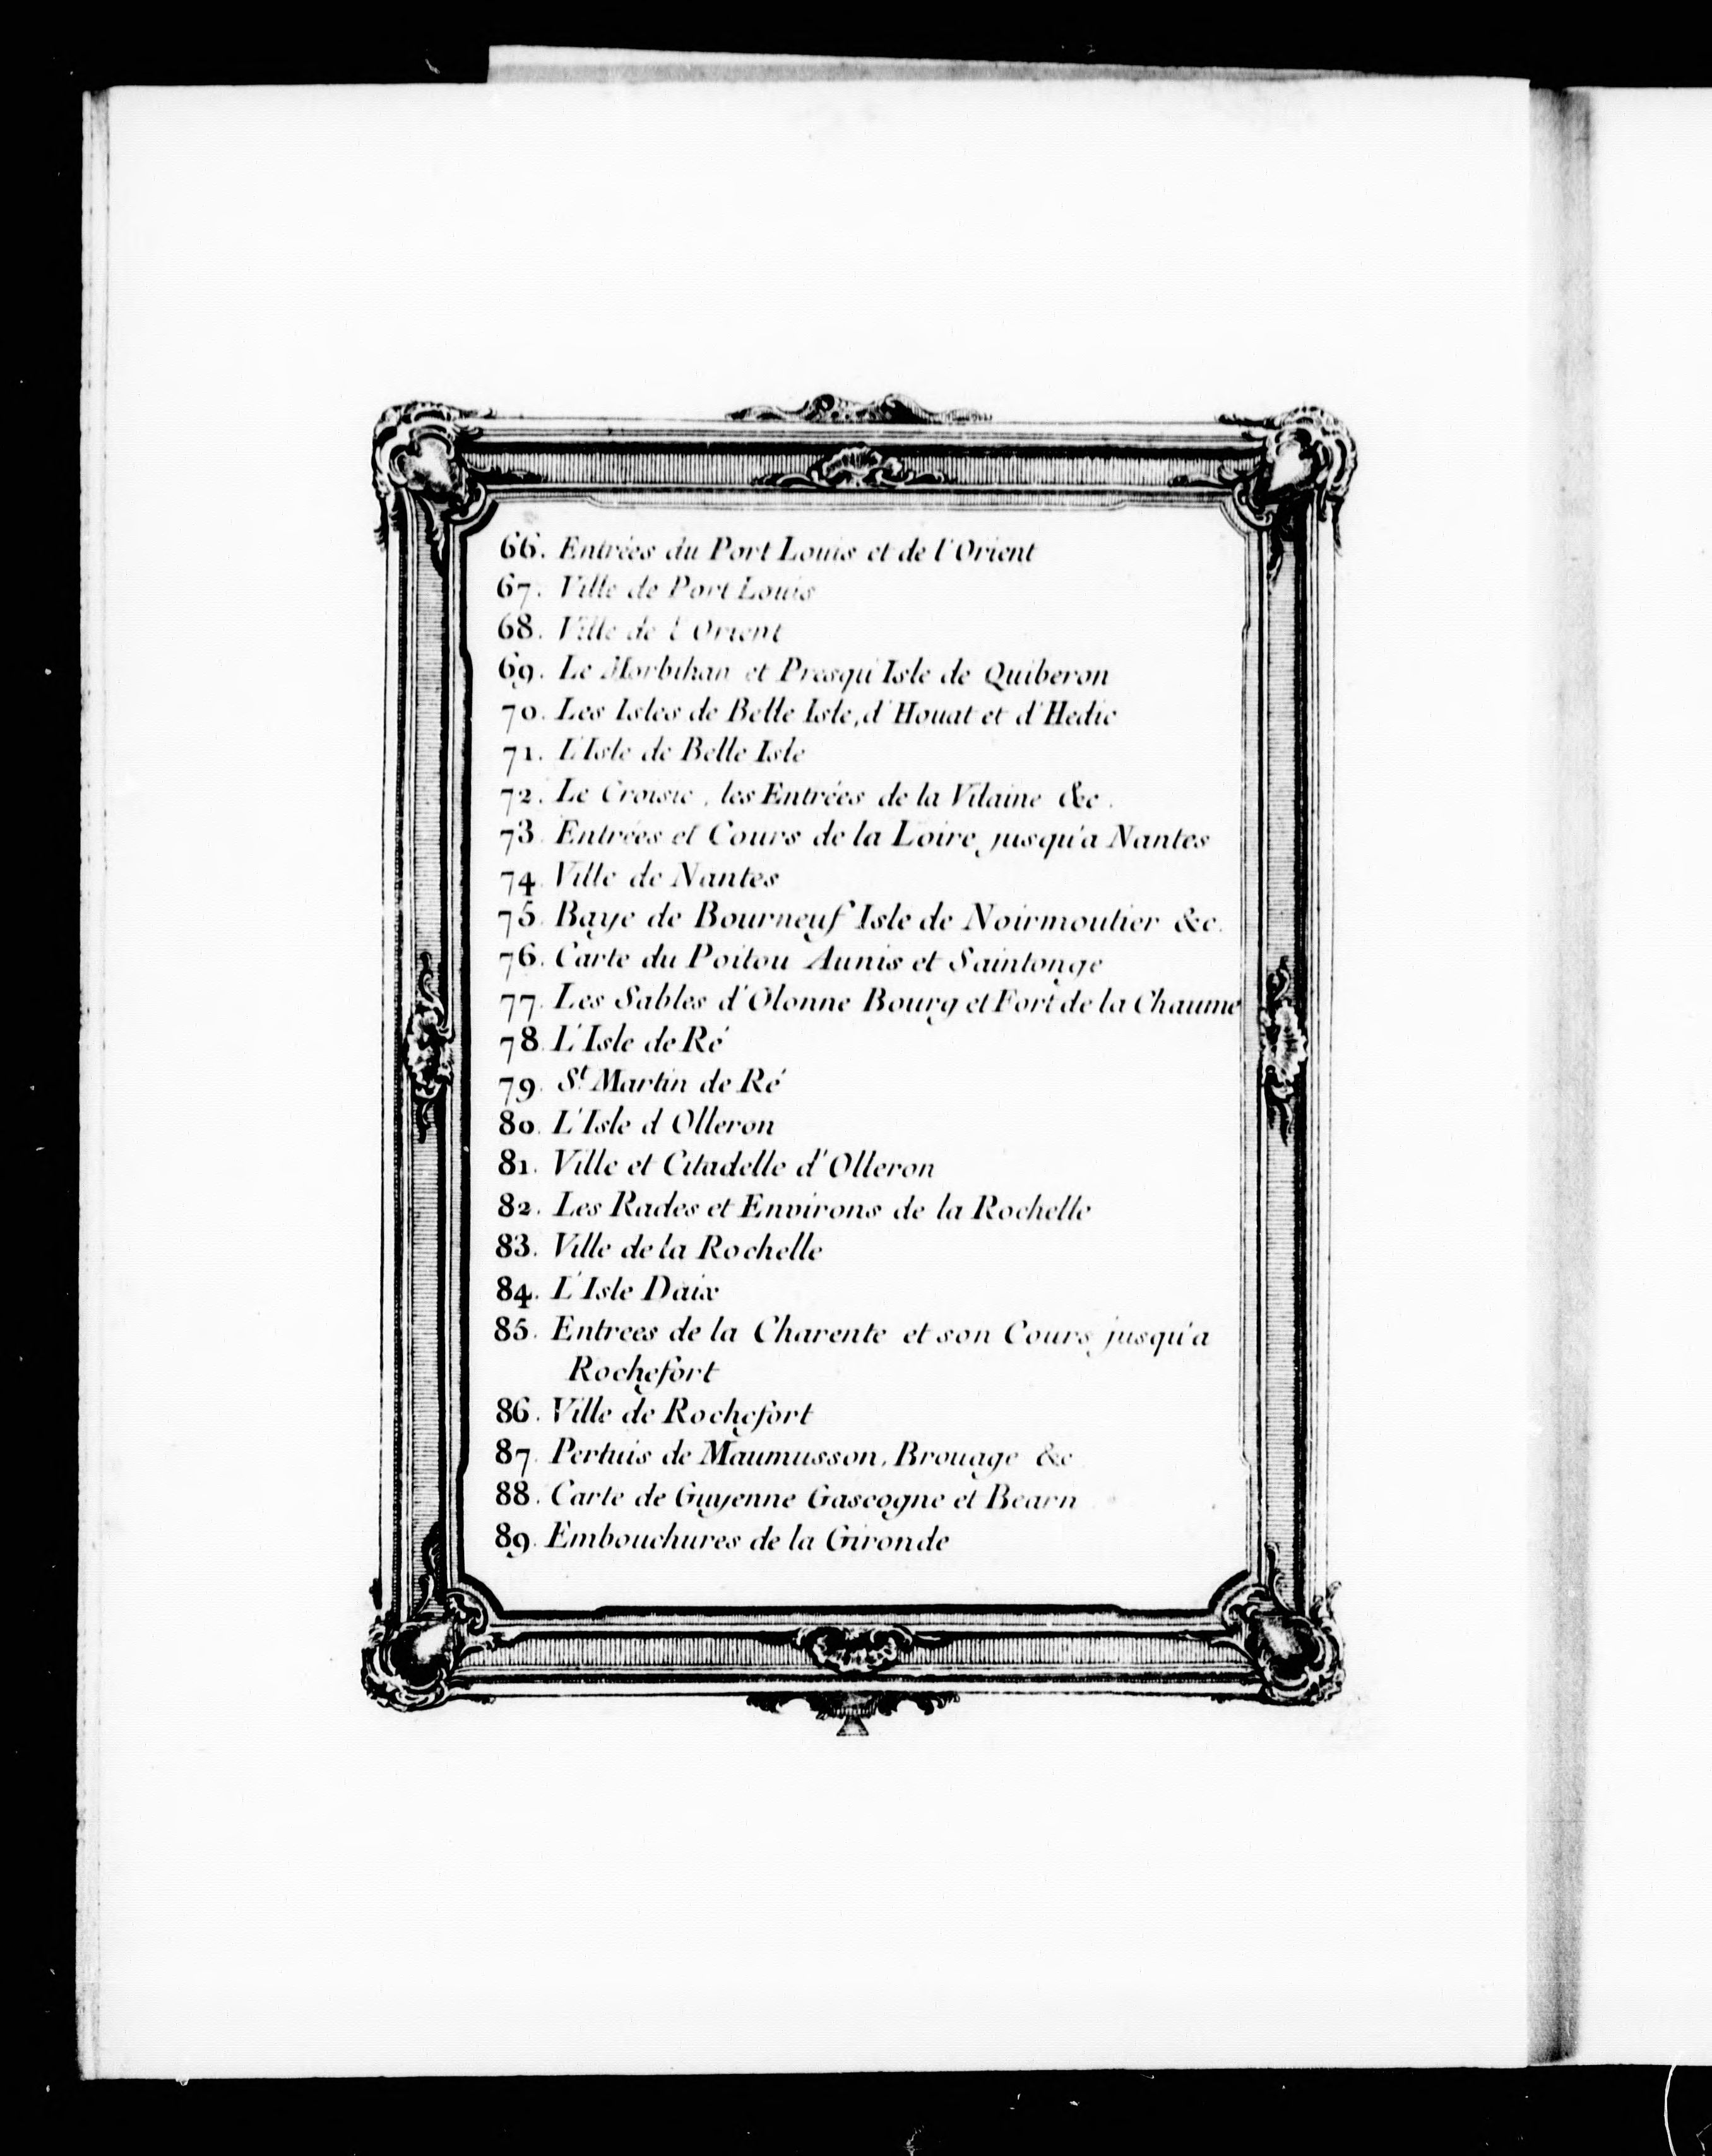 66. Entrées du Port Louis et de l'Orient
67. Ville de Port Louis
68. Ville de l'Orient
69. Le Morbihan et Presqu'Isle de Quiberon
70. Les Isles de Belle Isle, d'Houat et d'Hedic
71. L'Isle de Belle Isle
72. Le Croisic, les Entrées de la Vilaine &c.
73. Entrées et Cours de la Loire, jusqu'a Nantes
74. Ville de Nantes
75. Baye de Bourneuf Isle de Noirmoutier &c.
76. Carte du Poitou Aunis et Saintonge
77. Les Sables d'Olonne Bourg et Fort de la Chaume
78. L'Isle de Ré
79. St. Martin de Ré
80. L'Isle d Olleron
81. Ville et Citadelle d'Olleron
82. Les Rades et Environs de la Rochelle
83. Ville de la Rochelle
84. L'Isle Daix
85. Entrees de la Charente et son Cours jusqu'a
Rochefort
86. Ville de Rochefort
87. Pertuis de Maumusson, Brouage &c
88. Carte de Guyenne Gascogne et Bearn
89. Embouchures de la Gironde